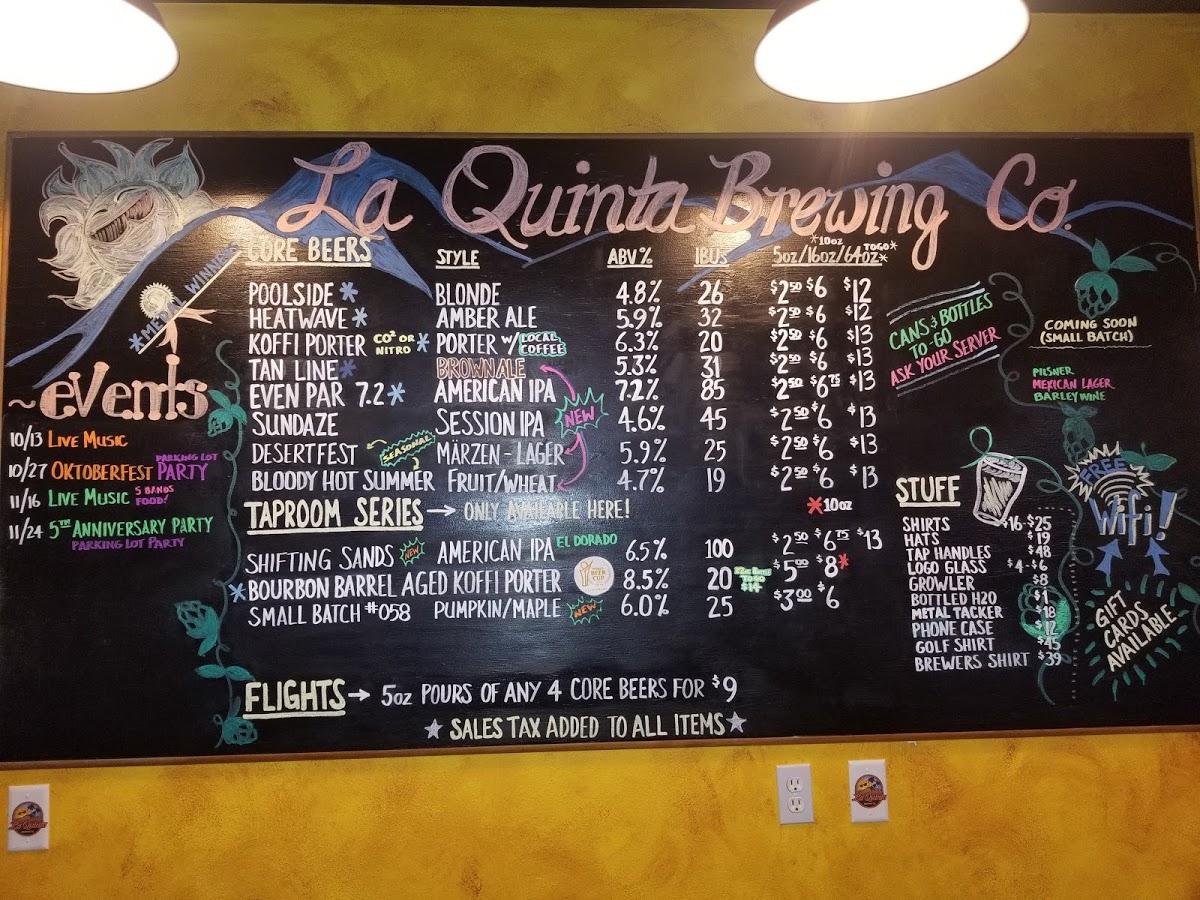 La Quinta Brewing Co.
*MEDAL WINNER
CORE BEERS STYLE ABV% IBUs 5oz/16oz/64oz* *10oz TOGO*
POOLSIDE * BLONDE 4.8% 26 $2⁵⁰ $6 $12
HEATWAVE * AMBER ALE 5.9% 32 $2⁵⁰ $6 $12
KOFFI PORTER CO² OR NITRO * PORTER W/ LOCAL COFFEE 6.3% 20 $2⁵⁰ $6 $13
TAN LINE * BROWN ALE 5.3% 31 $2⁵⁰ $6 $13
EVEN PAR 7.2 * AMERICAN IPA 7.2% 85 $2⁵⁰ $6⁷⁵ $13
SUNDAZE SESSION IPA NEW 4.6% 45 $2⁵⁰ $6 $13
DESERTFEST SEASONAL MÄRZEN - LAGER 5.9% 25 $2⁵⁰ $6 $13
BLOODY HOT SUMMER FRUIT/WHEAT 4.7% 19 $2⁵⁰ $6 $13
TAPROOM SERIES → ONLY AVAILABLE HERE! *10oz
SHIFTING SANDS NEW AMERICAN IPA EL DORADO 6.5% 100 $2⁵⁰ $6⁷⁵ $13
*BOURBON BARREL AGED KOFFI PORTER BEER CUP 8.5% 20 TOGO $14 $5⁰⁰ $8*
SMALL BATCH #058 PUMPKIN/MAPLE NEW 6.0% 25 $3⁰⁰ $6
FLIGHTS → 5oz POURS OF ANY 4 CORE BEERS FOR $9
★ SALES TAX ADDED TO ALL ITEMS ★
~eVents
10/13 LIVE MUSIC
10/27 OKTOBERFEST PARKING LOT PARTY
11/16 LIVE MUSIC 5 BANDS FOOD!
11/24 5TH ANNIVERSARY PARTY
PARKING LOT PARTY
CANS & BOTTLES
TO-GO
ASK YOUR SERVER
COMING SOON
(SMALL BATCH)
PILSNER
MEXICAN LAGER
BARLEY WINE
STUFF
SHIRTS $16-$25
HATS $19
TAP HANDLES $48
LOGO GLASS $4-$6
GROWLER $8
BOTTLED H2O $1
METAL TACKER $18
PHONE CASE $12
GOLF SHIRT $45
BREWERS SHIRT $39
FREE
WiFi!
GIFT
CARDS
AVAILABLE
La Quinta
La Quinta